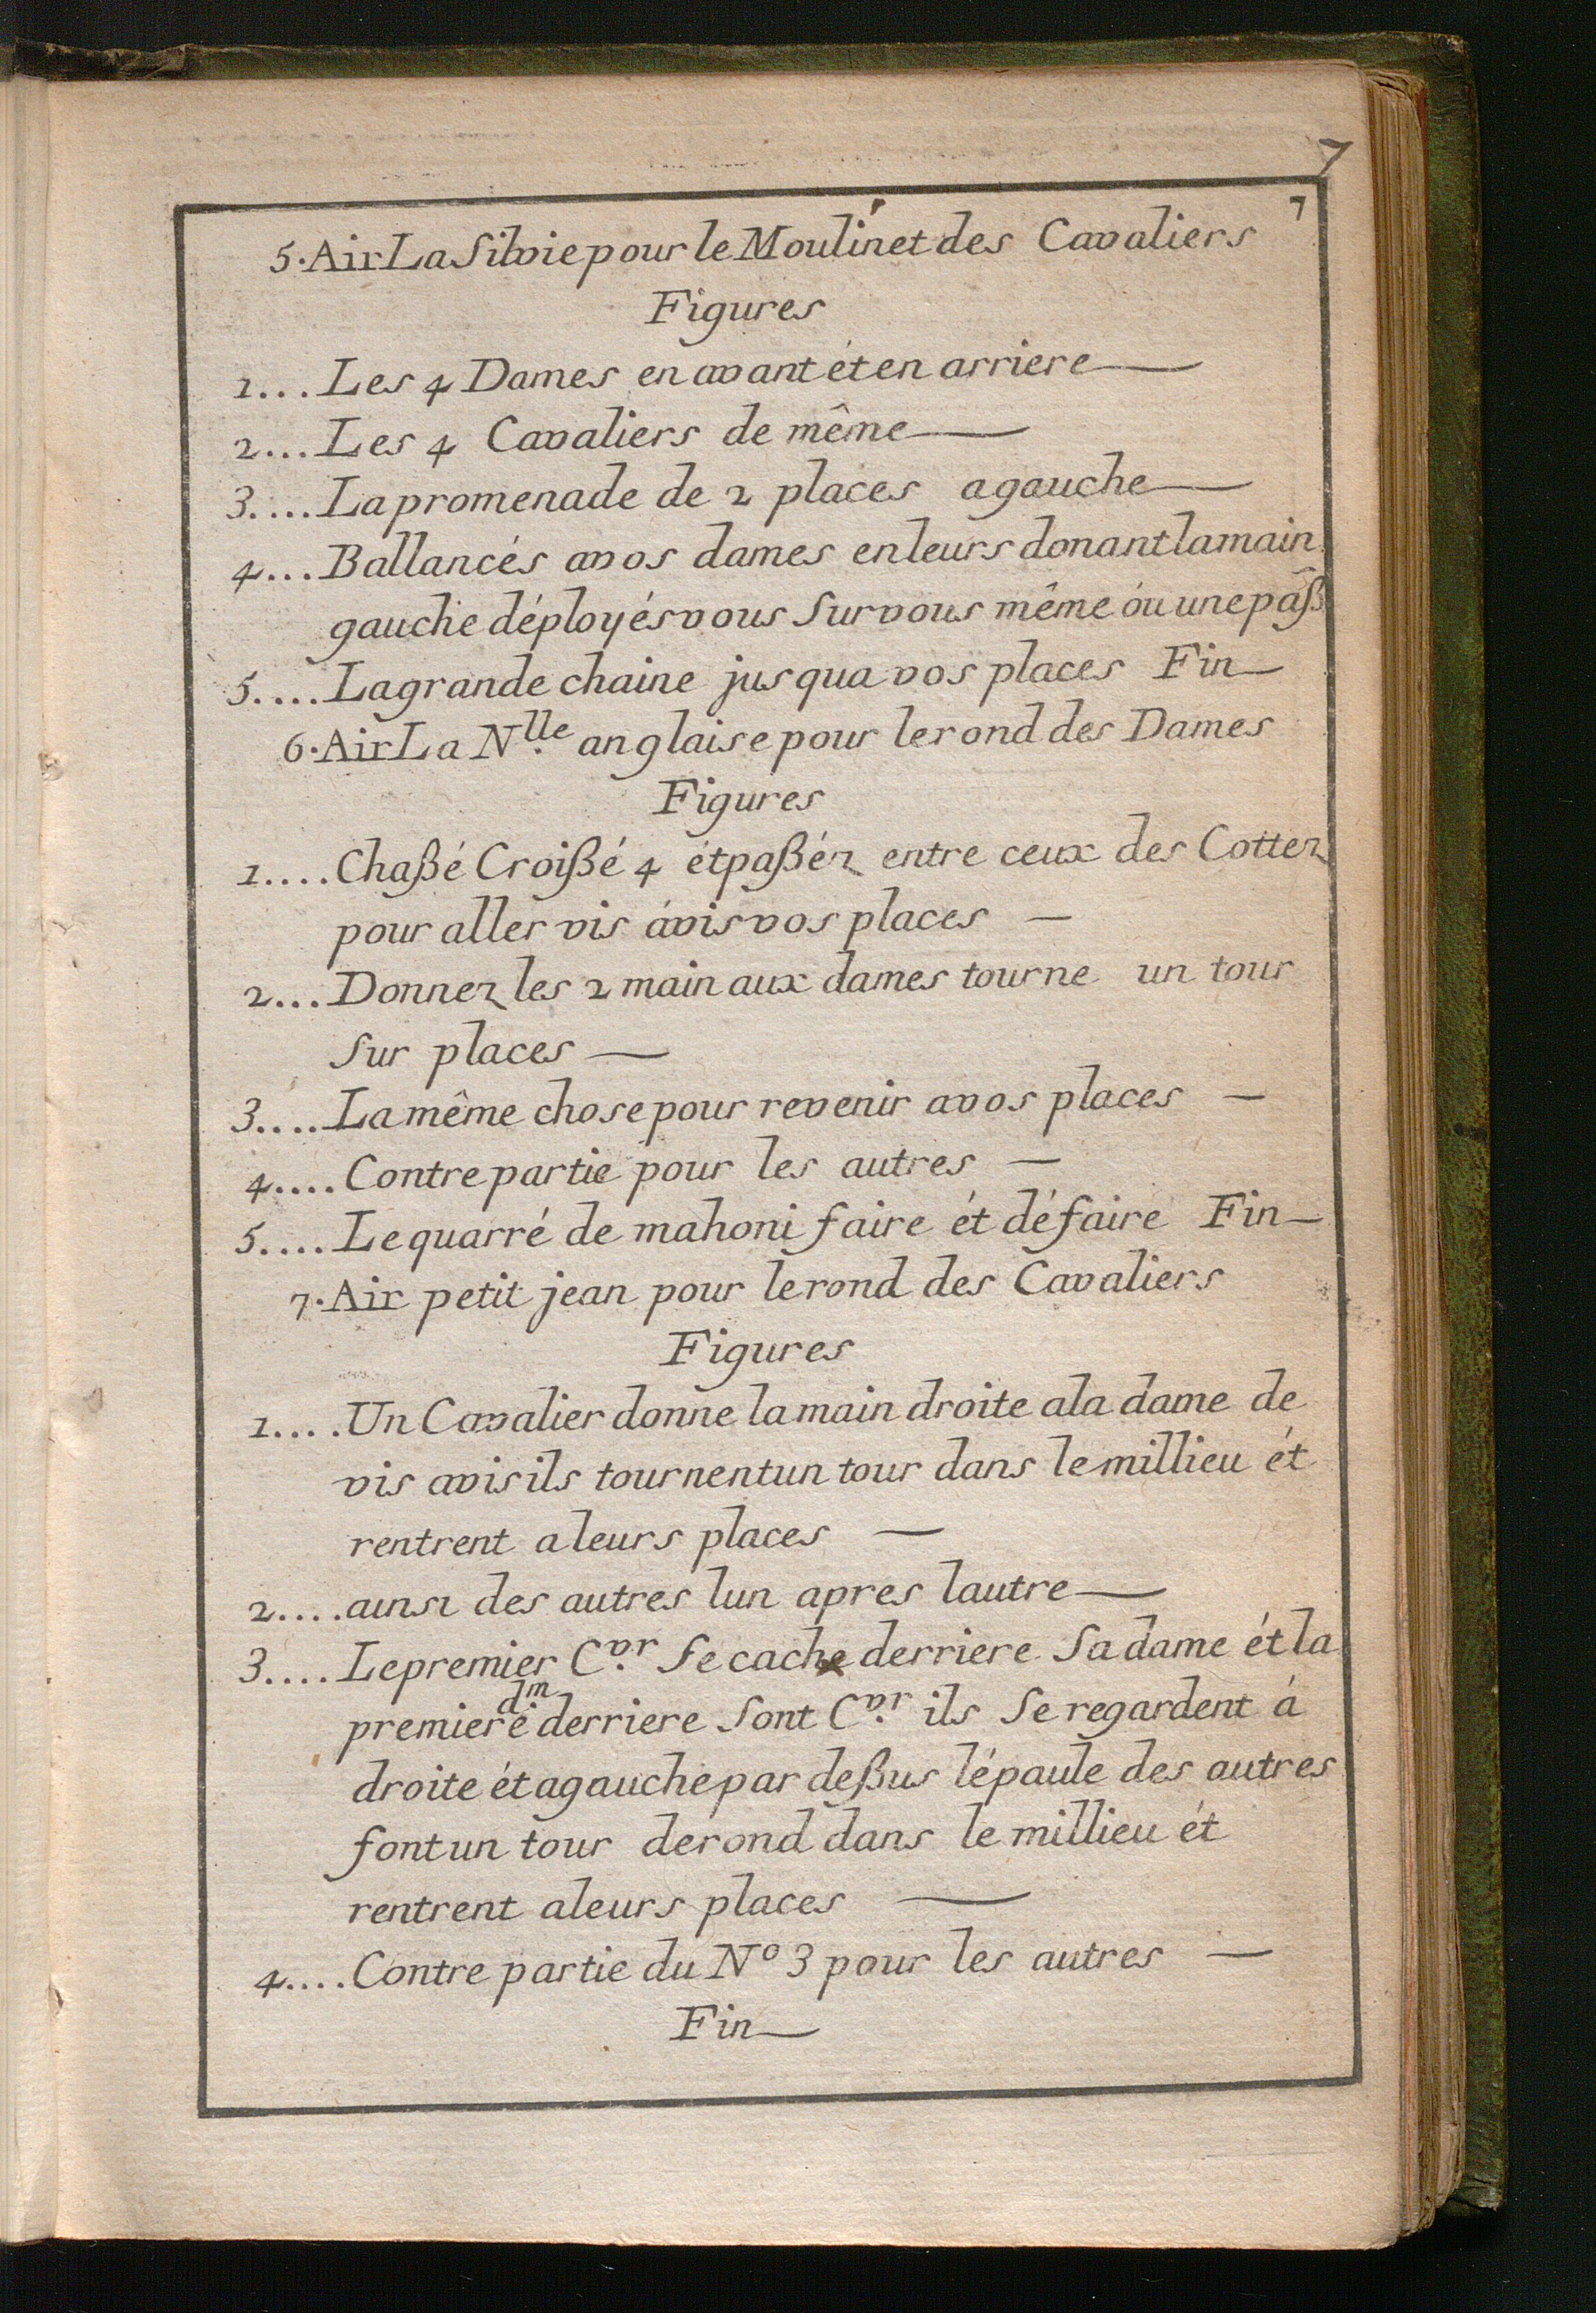 7
7
5. Air La Silvie pour le Moulinet des Cavaliers
Figures
1... Les 4 Dames en avant ét en arriere —
2... Les 4 Cavaliers de même —
3.... La promenade de 2 places a gauche —
4... Ballancés a vos dames en leurs donant la main
gauche déployés vous Sur vous même óu une pâß
5.... La grande chaine jus qua vos places Fin —
6. Air La Nlle. anglaise pour le rond des Dames
Figures
1.... Chaßé Croißé 4 ét paßéz entre ceux des Cottez
pour aller vis ávis vos places —
2... Donnez les 2 main aux dames tourne un tour
Sur places —
3.... La même chose pour revenir a vos places —
4.... Contre partie pour les autres —
5.... Le quarré de mahoni faire ét défaire Fin —
7. Air petit jean pour le rond des Cavaliers
Figures
1.... Un Cavalier donne la main droite a la dame de
vis avis ils tournent un tour dans le millieu ét
rentrent a leurs places —
2.... ainsi des autres lun apres lautre —
3.... Le premier Cvr. Se cache derriere Sa dame ét la
premiere dm derriere Sont Cvr. ils Se regardent á
droite ét a gauche par deßus lépaule des autres
font un tour de rond dans le millieu ét
rentrent a leurs places —
4.... Contre partie du No 3 pour les autres —
Fin —